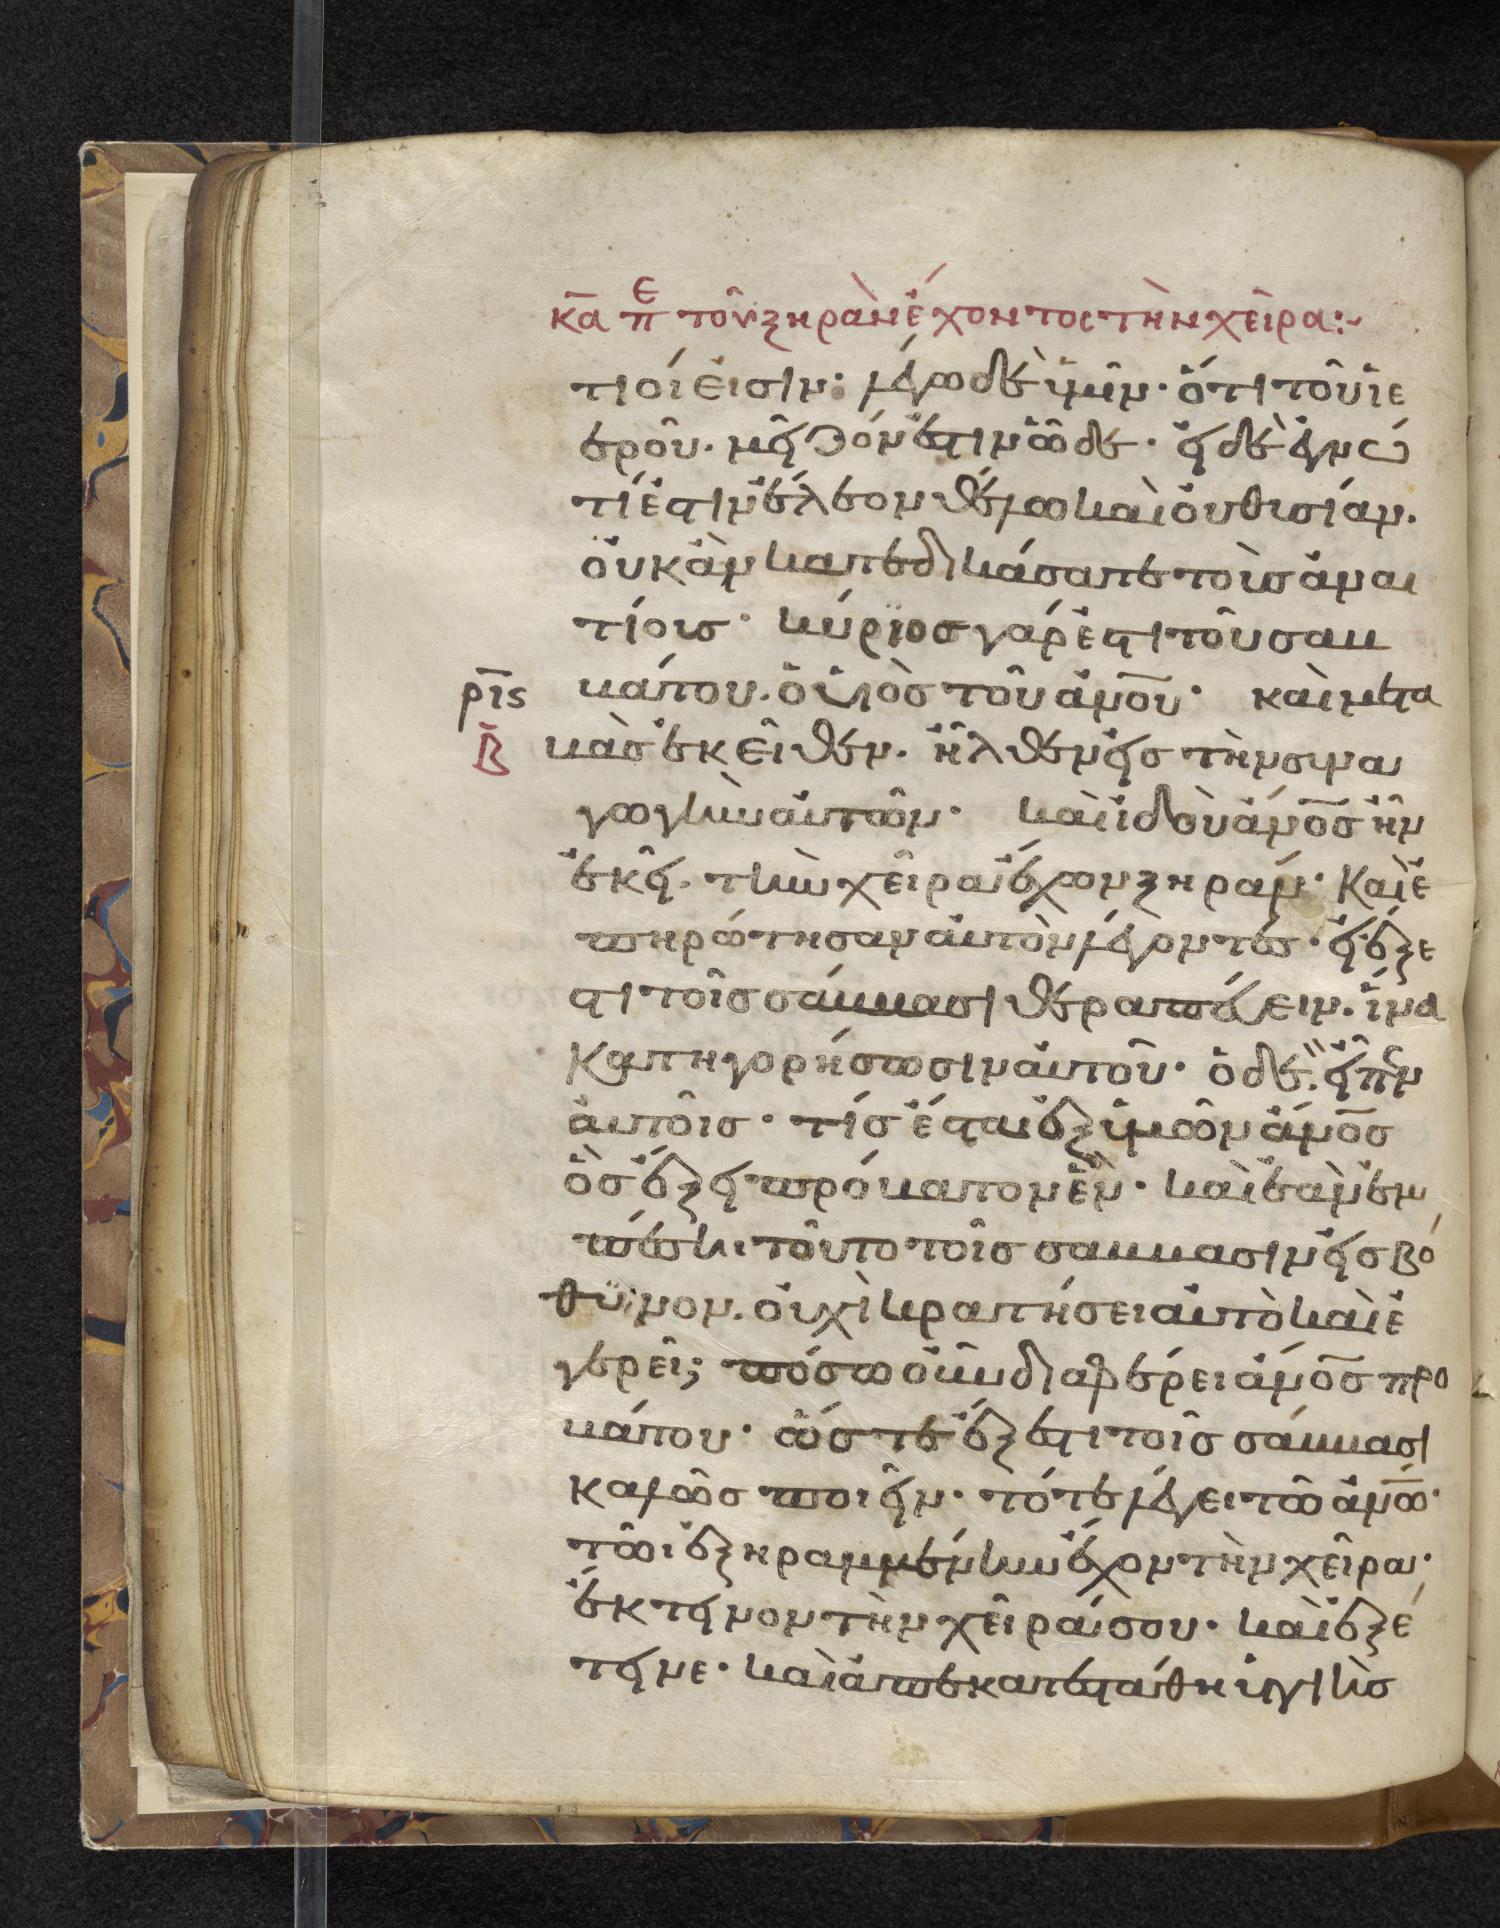 κα̅ πε τοῦ ξηρὰν ἔχοντος τὴν χεῖρα:~
τιοί εἰσιν· λέγω δὲ ὑμῖν· ὅτι τοῦ ἱε
εροῦ· μεῖζόν ἐστιν ὧδε· εἰ δὲ ἐγνώ
τί ἐστιν ἔλεον θέλω καὶ οὐ θυσίαν.
οὐκ ἂν κατεδικάσατε τοὺς ἀναι
τίους· κύριος γάρ ἐστι τοῦ σαβ
βάτου. ὁ υἱὸς τοῦ ἀνο̅υ· καὶ μετα
ρι̅ς
β̅
βὰς ἐκεῖθεν. ἦλθεν εἰς τὴν συνα
γωγὴν αὐτῶν· καὶ ἰδοὺ ἄνο̅ς ἦν
ἐκεῖ. τὴν χεῖρα ἔχων ξηράν· Καὶ ἐ
πηρώτησαν αὐτὸν λέγοντες· εἰ ἔξε
στι τοῖς σάββασι θεραπεύειν. ἵνα
κατηγορήσωσιν αὐτοῦ· ὁ δὲ εἶπεν
αὐτοῖς· τίς ἔσται ἐξ ὑμῶν ἄνο̅ς
ὃς ἕξει πρόβατον ἓν· καὶ ἐὰν ἐμ
πέσῃ τοῦτο τοῖς σάββασιν εἰς βό
θυνον. οὐχὶ κρατήσει αὐτὸ καὶ ἐ
γερεῖ; πόσω οὖν διαφέρει ἄνο̅ς προ
βάτου· ὥστε ἔξεστι τοῖς σάββασι
καλῶς ποιεῖν· τότε λέγει τῶ ἀνω̅·
τῶι ἐξηραμμένην ἔχοντι τὴν χεῖρα·
ἔκτεινον τὴν χεῖρά σου· καὶ ἐξέ
τεινε· καὶ ἀπεκατεστάθη ὑγιὴς